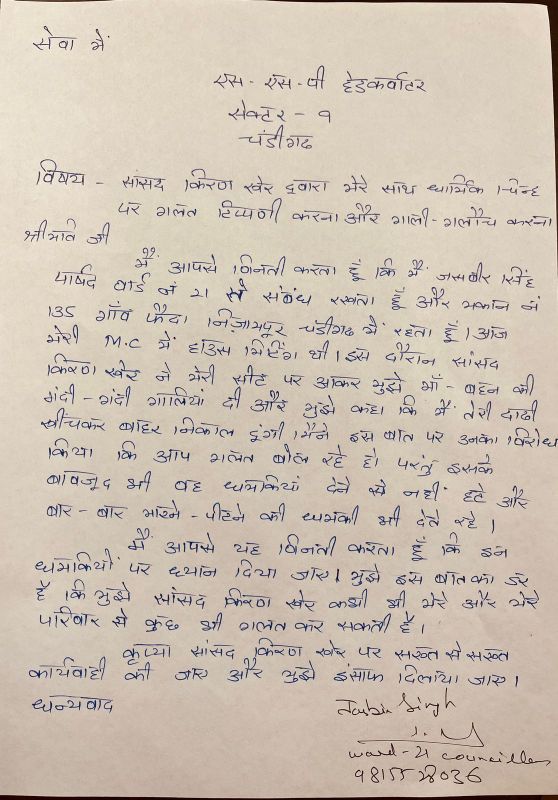 सेवा में
एस-एस-पी हेडकर्वाटर
सेक्टर - ९
चंडीगढ
विषय - सांसद किरण खेर द्वारा मेरे साथ धार्मिक चिन्ह
पर गलत टिप्पणी करना और गाली-गलौच करना
श्रीमति जी
मैं आपसे विनती करता हूँ कि मैं जसबीर सिंह
पार्षद वार्ड नं 21 से संबंध रखता हूँ और मकान नं
135 गाँव फैदा निज़ामपूर चंडीगढ में रहता हूँ। आज
मेरी M.C में हाउस मिटिंग थी। इस दौरान सांसद
किरण खेर ने मेरी सीट पर आकर मुझे माँ-बहन की
गंदी-गंदी गालियां दी और मुझे कहा कि मैं तेरी दाढी
खींचकर बाहर निकाल दूंगी। मैंने इस बात पर उनका विरोध
किया कि आप गलत बोल रहे हो। परंतु इसके
बावजूद भी वह धमकियां देने से नहीं हटे और
बार-बार मारने-पीटने की धमकी भी देते रहे।
मैं आपसे यह विनंती करता हूँ कि इन
धमकियों पर ध्यान दिया जाए। मुझे इस बात का डर
है कि मुझे सांसद किरण खेर कभी भी मेरे और मेरे
परिवार से कुछ भी गलत कर सकती है।
कृप्या सांसद किरण खेर पर सख्त से सख्त
कार्यवाही की जाए और मुझे इंसाफ दिलाया जाए।
धन्यवाद
Jasbir Singh
ward-21 councillor
9815528036